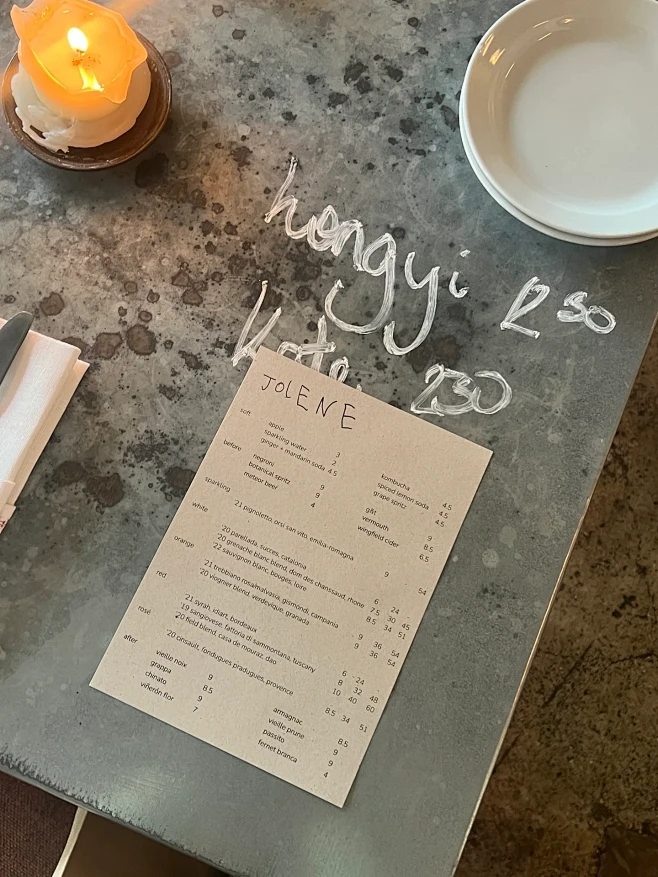 hongyi 1230
Kate 230
JOLENE
soft
apple 3
sparkling water 2
ginger + mandarin soda 4.5
kombucha 4.5
spiced lemon soda 4.5
grape spritz 4.5
before
negroni 9
botanical spritz 9
meteor beer 4
g&t 9
vermouth 8.5
wingfield cider 6.5
sparkling
'21 pignoletto, orsi san vito, emilia-romagna 9 54
white
'20 parellada, succes, catalonia 6 24 -
'20 grenache blanc blend, dom des chanssaud, rhone 7.5 30 45
'22 sauvignon blanc, bouges, loire 8.5 34 51
orange
'21 trebbiano rosa/malvasia, gismondi, campania 9 36 54
'20 viognier blend, verdevique, granada 9 36 54
red
'21 syrah, idiart, bordeaux 6 24 -
'19 sangiovese, fattoria di sammontana, tuscany 8 32 48
'20 field blend, casa de mouraz, dao 10 40 60
rosé
'20 cinsault, fondugues pradugues, provence 8.5 34 51
after
vieille noix 9
grappa 8.5
chinato 9
viñerón flor 7
armagnac 8.5
vieille prune 9
passito 9
fernet branca 4